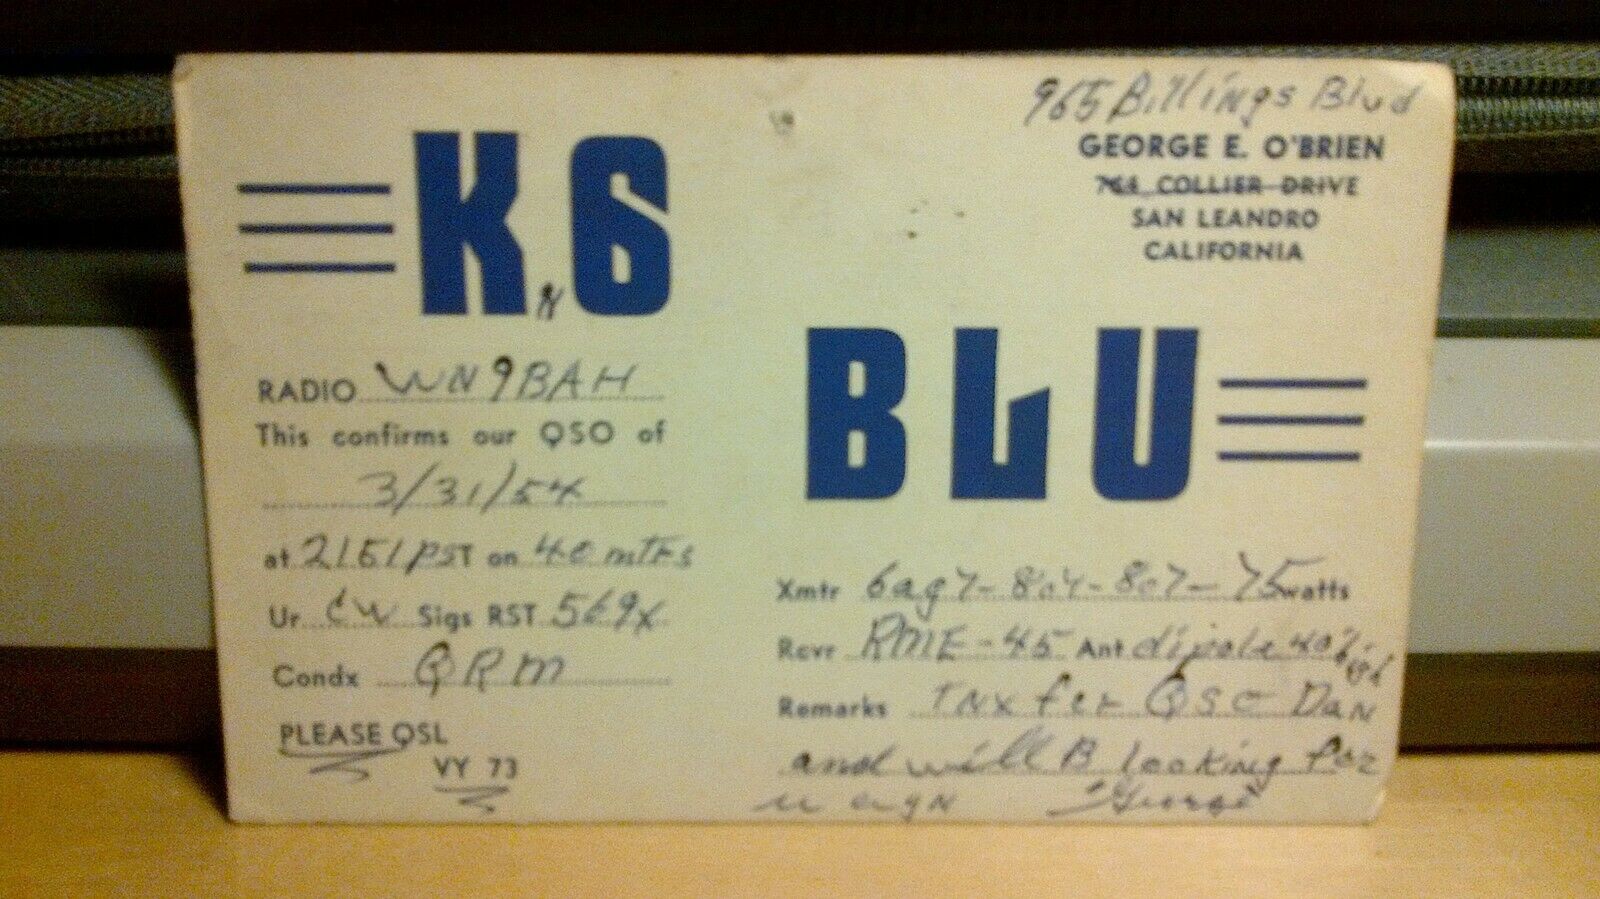 965 Billings Blvd
GEORGE E. O'BRIEN
COLLIER DRIVE
SAN LEANDRO
CALIFORNIA
KN6
BLU
RADIO WN9BAH
This confirms our QSO of
3/31/54
at 2151 PST on 40 mtrs
Ur CW Sigs RST 569x
Condx QRM
PLEASE QSL
VY 73
Xmtr 6ag7-807-807-75 watts
Rcvr RME-45 Ant dipole 40' high
Remarks Tnx fer QSO Dan
and will B looking for
u agn George